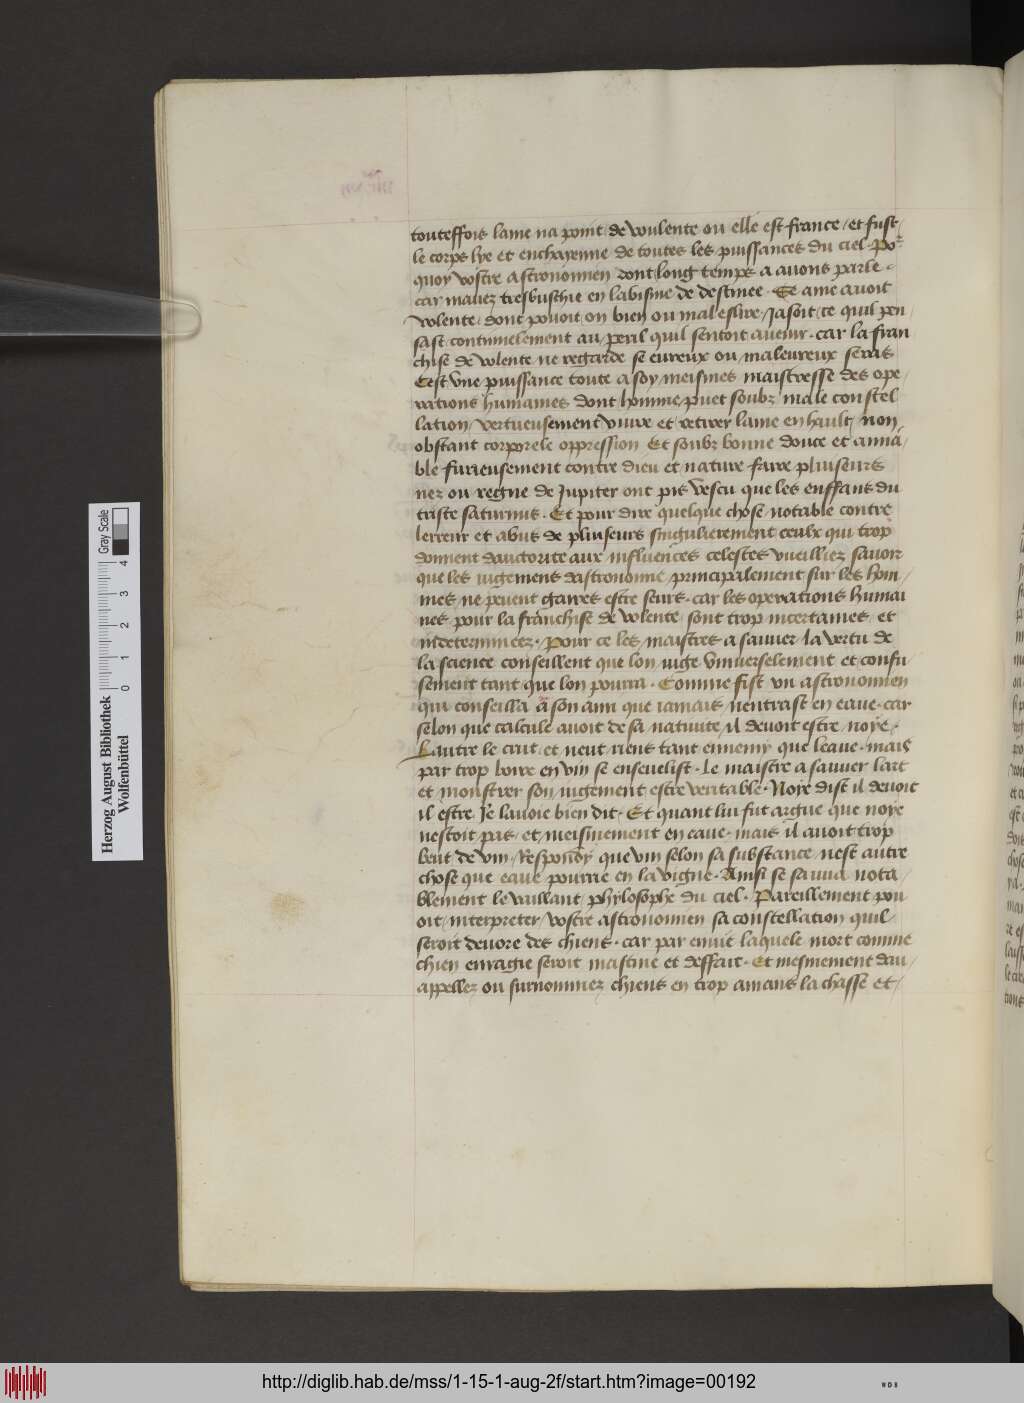 touteffois lame na point de voulente ou elle est france / et fust /
le corps lye et enchayenne de toutes les puissances du ciel . Por
quoy vostre astronomien dont long temps a auons parle .
car mauez tresbuschie en labisme de destinee . Se ame auoit
volente / dont pouoit on bien ou mal eslire / Jasoit ce quil pen /
sast continuelement au peril quil sentoit auenir . car la fran
chise de volente ne regarde se eureux ou maleureux seras
Cest vne puissance toute a soy meismes maistresse des ope /
rations humaines dont homme puet soubz male constel
lation / vertueusement viure et retirer lame en hault / non
obstant corporele oppression Et soubz bonne douce et amia /
ble furieusement contre dieu et nature faire pluiseurs
nez ou regne de Jupiter ont pis vescu que les enffans du
triste saturnus . Et pour dire quelque chose notable contre
lerreur et abus de pluiseurs singulierement ceulx qui trop
donnent dauctorite aux influences celestes vueilliez sauoir
que les iugemens dastronomie / principalement sur les hom /
mes / ne peuent gaires estre seurs . car les operations humai
nes pour la franchise de volente sont trop incertaines et
indeterminees . Pour ce les maistres a sauuer la vertu de
la science conseillent que lon iuge vniuerselement et confu /
sement tant que lon pourra . Comme fist vn astronomien
qui conseilla a son ami que iamais nentrast en eaue . car
selon que calcule auoit de sa natiuite / il deuoit estre noye .
Lautre le crut / et neut riens tant ennemy que leaue . mais
par trop boire en vin se enseuelist . Le maistre a sauuer lart
et monstrer son iugement estre veritable . Noye dist il deuoit
il estre Je lauoie bien dit . Et quant lui fut argue que noye
nestoit pas / et meismement en eaue . mais il auoit trop
beut de vin . Respondy que vin selon sa substance nest autre
chose que eaue pourrie en la vigne . Ainsi se sauua nota /
blement le vaillant phylosophe du ciel . Pareillement pou
oit / interpreter / vostre astronomien sa constellation quil /
seroit deuore des chiens . car par enuie laquele mort comme
chien enragie seroit mastine et deffait . Et mesmement dau /
appellez ou surnommez chiens en trop amans la chasse et /
Herzog August Bibliothek
Wolfenbüttel
0 1 2 3 4
Gray Scale
http://diglib.hab.de/mss/1-15-1-aug-2f/start.htm?image=00192